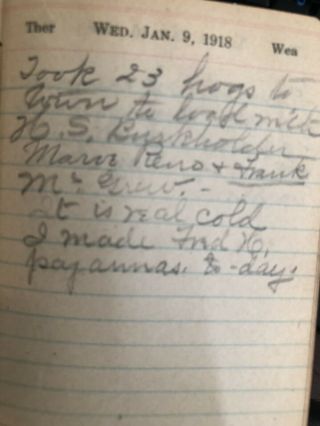 Ther WED. JAN. 9, 1918 Wea
Took 23 hogs to
town to load with
H. S. Burkholder
Marve Reno + Frank
Mc Grew. -
It is real cold
I made Fred H.
pajammas. to-day.